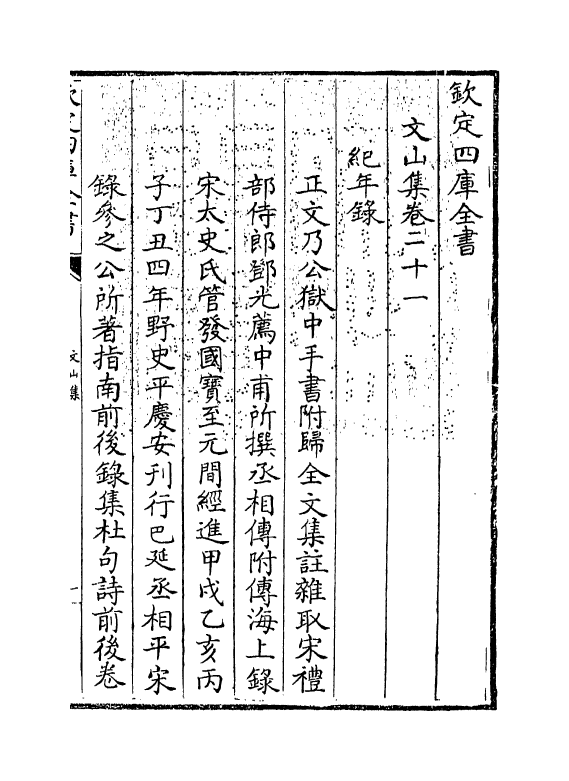 欽定四庫全書
文山集卷二十一
紀年錄
正文乃公獄中手書附歸全文集註雜取宋禮
部侍郎鄧光薦中甫所撰丞相傳附傳海上錄
宋太史氏管發國寶至元間經進甲戌乙亥丙
子丁丑四年野史平慶安刋行巴延丞相平宋
錄參之公所著指南前後錄集杜句詩前後卷
欽定四庫全書
文山集
一